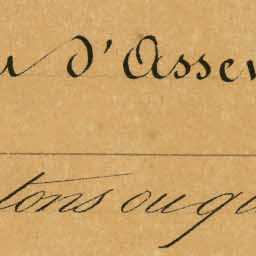 u d'Assem
tons ou qu